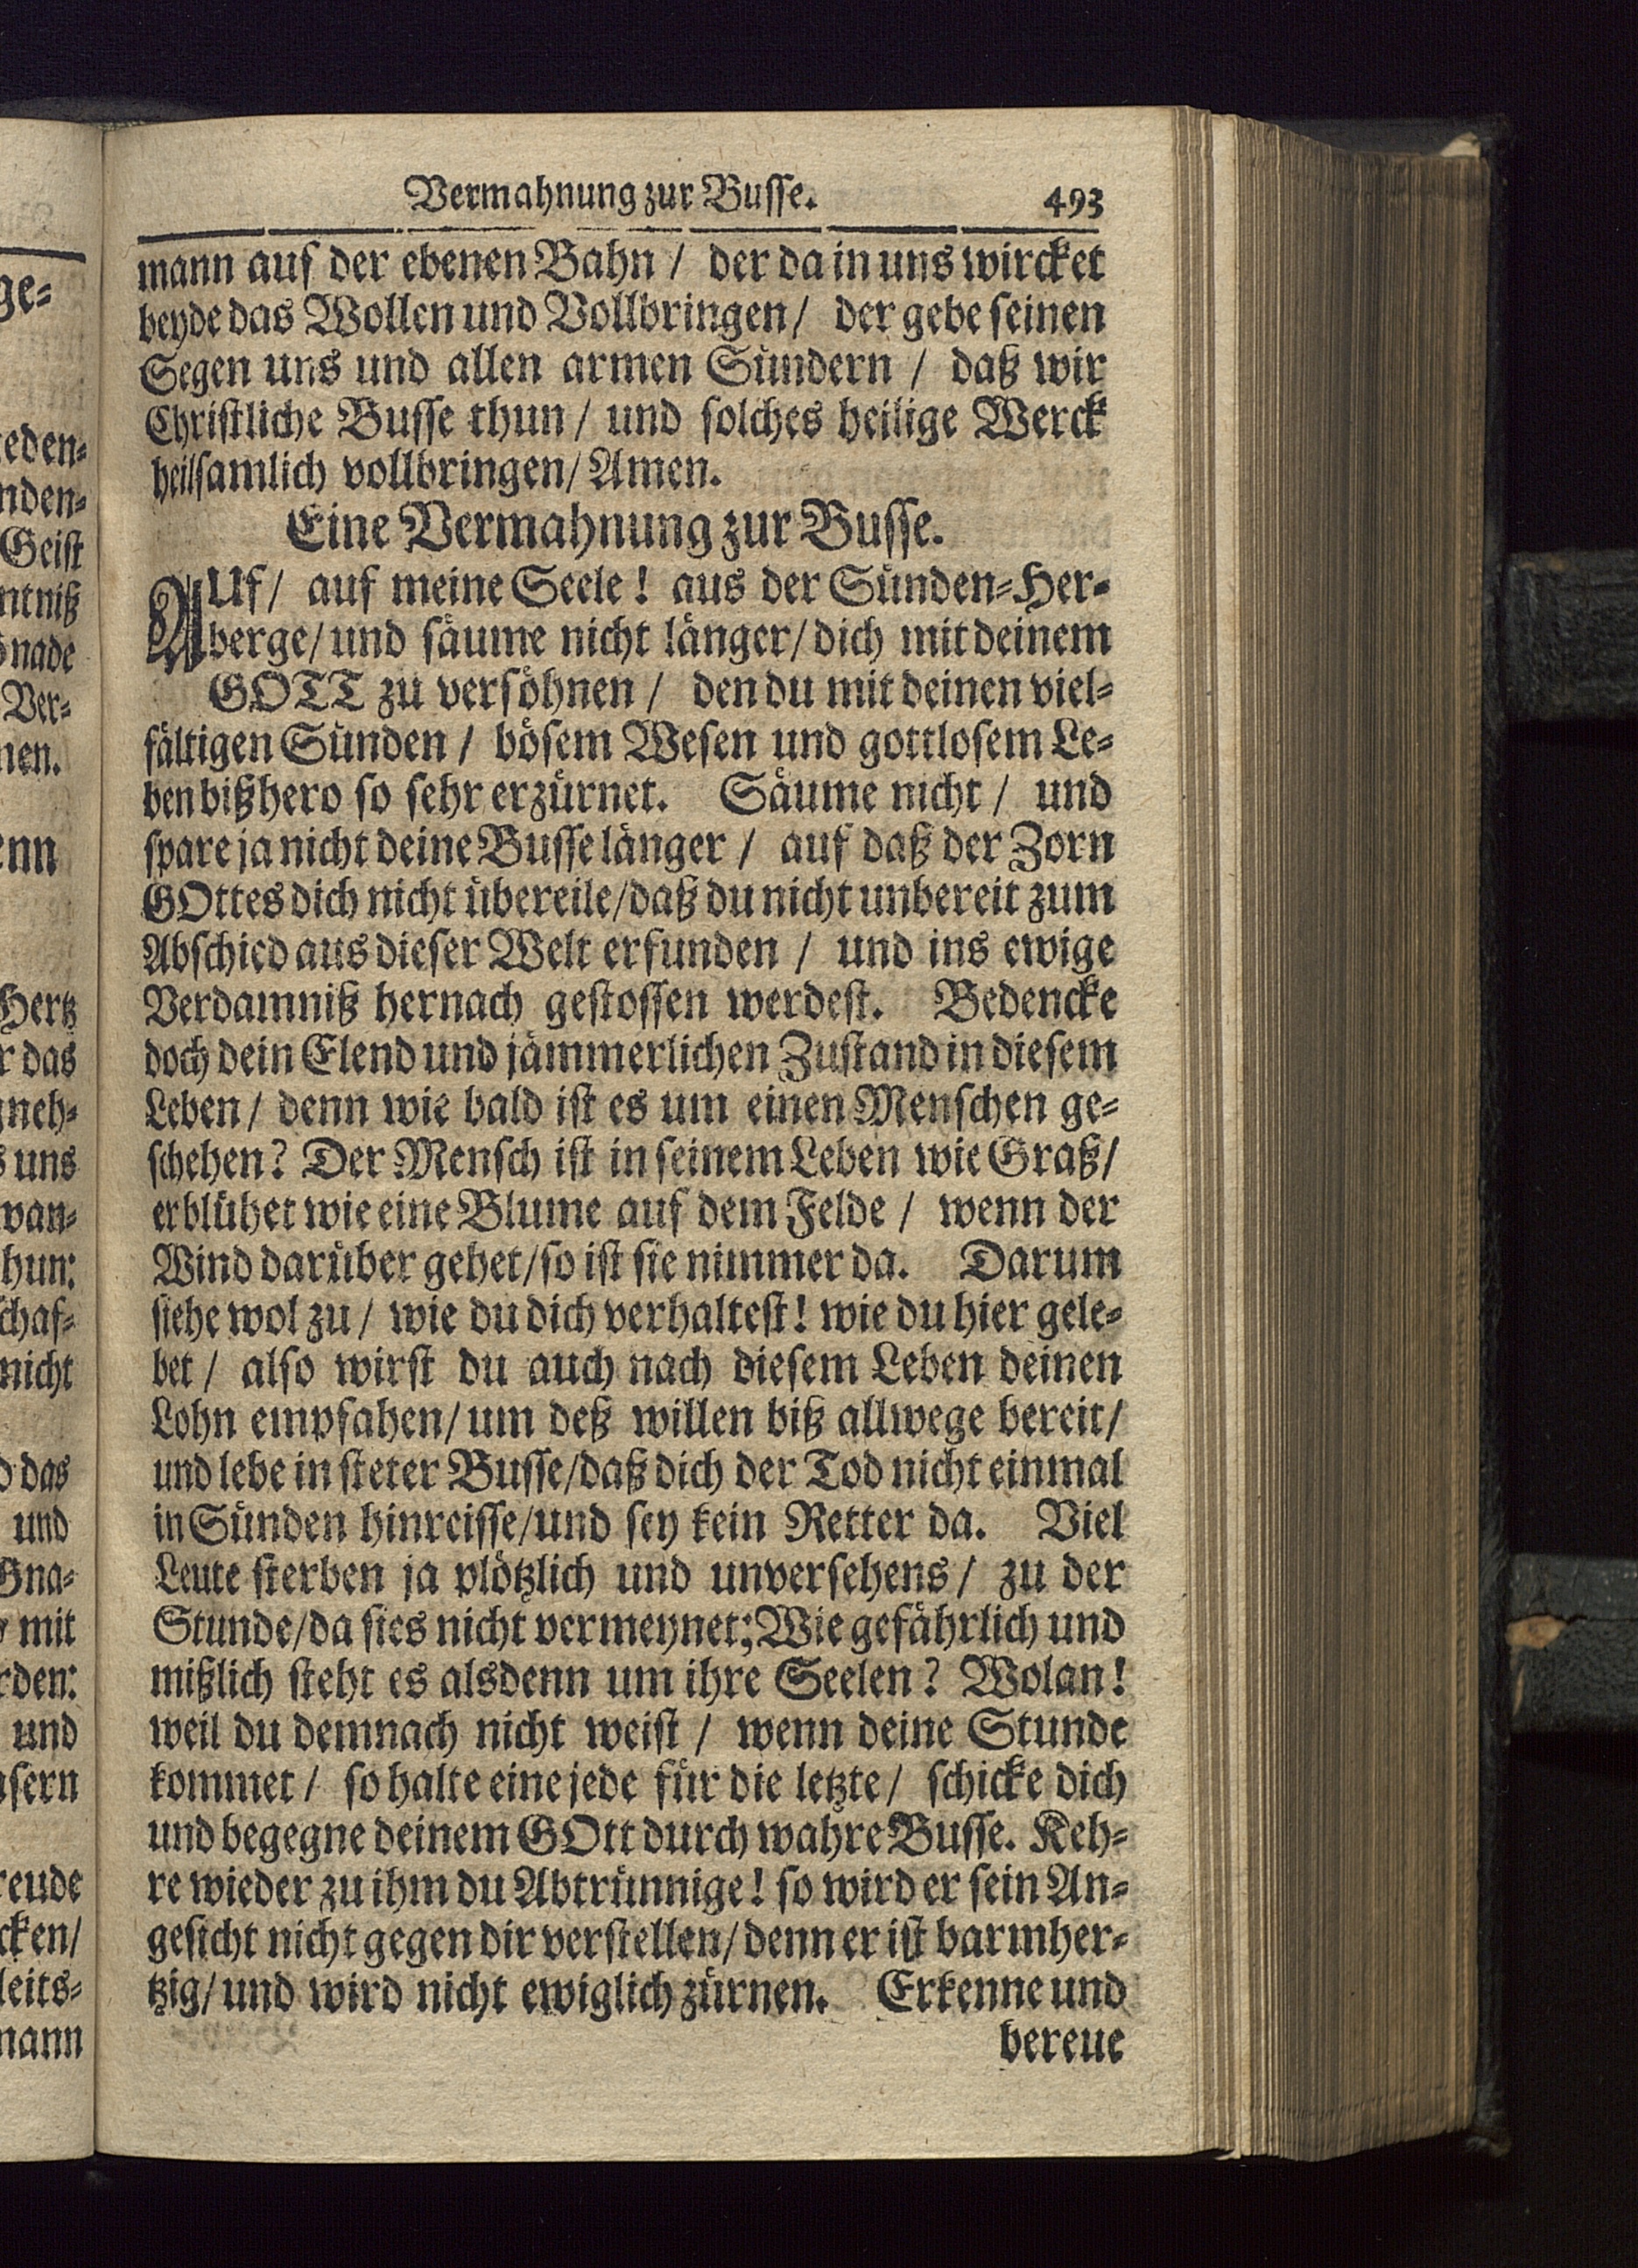 Vermahnung zur Busse. 493
mann auf der ebenen Bahn / der da in uns wircket
beyde das Wollen und Vollbringen / der gebe seinen
Segen uns und allen armen Sündern / daß wir
Christliche Busse thun / und solches heilige Werck
heilsamlich vollbringen / Amen.
Eine Vermahnung zur Busse.
AUf / auf meine Seele! aus der Sünden-Her-
berge / und säume nicht länger / dich mit deinem
GOTT zu versöhnen / den du mit deinen viel-
fältigen Sünden / bösem Wesen und gottlosem Le-
ben bißhero so sehr erzürnet. Säume nicht / und
spare ja nicht deine Busse länger / auf daß der Zorn
GOttes dich nicht übereile / daß du nicht unbereit zum
Abschied aus dieser Welt erfunden / und ins ewige
Verdamniß hernach gestossen werdest. Bedencke
doch dein Elend und jämmerlichen Zustand in diesem
Leben / denn wie bald ist es um einen Menschen ge-
schehen? Der Mensch ist in seinem Leben wie Graß /
er blühet wie eine Blume auf dem Felde / wenn der
Wind darüber gehet / so ist sie nimmer da. Darum
siehe wol zu / wie du dich verhaltest! wie du hier gele-
bet / also wirst du auch nach diesem Leben deinen
Lohn empfahen / um deß willen biß allwege bereit /
und lebe in steter Busse / daß dich der Tod nicht einmal
in Sünden hinreisse / und sey kein Retter da. Viel
Leute sterben ja plötzlich und unversehens / zu der
Stunde / da sies nicht vermeynet; Wie gefährlich und
mißlich steht es alsdenn um ihre Seelen? Wolan!
weil du demnach nicht weist / wenn deine Stunde
kommet / so halte eine jede für die letzte / schicke dich
und begegne deinem GOtt durch wahre Busse. Keh-
re wieder zu ihm du Abtrünnige! so wird er sein An-
gesicht nicht gegen dir verstellen / denn er ist barmher-
tzig / und wird nicht ewiglich zürnen. Erkenne und
bereue